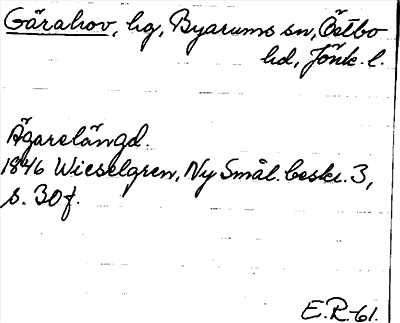 Gärahov, hg, Byarums sn, Östbo
hd, Jönk. l.
Ägarelängd.
1846 Wieselgren, Ny Smål. beskr. 3,
s. 30 f.
E.R-61.